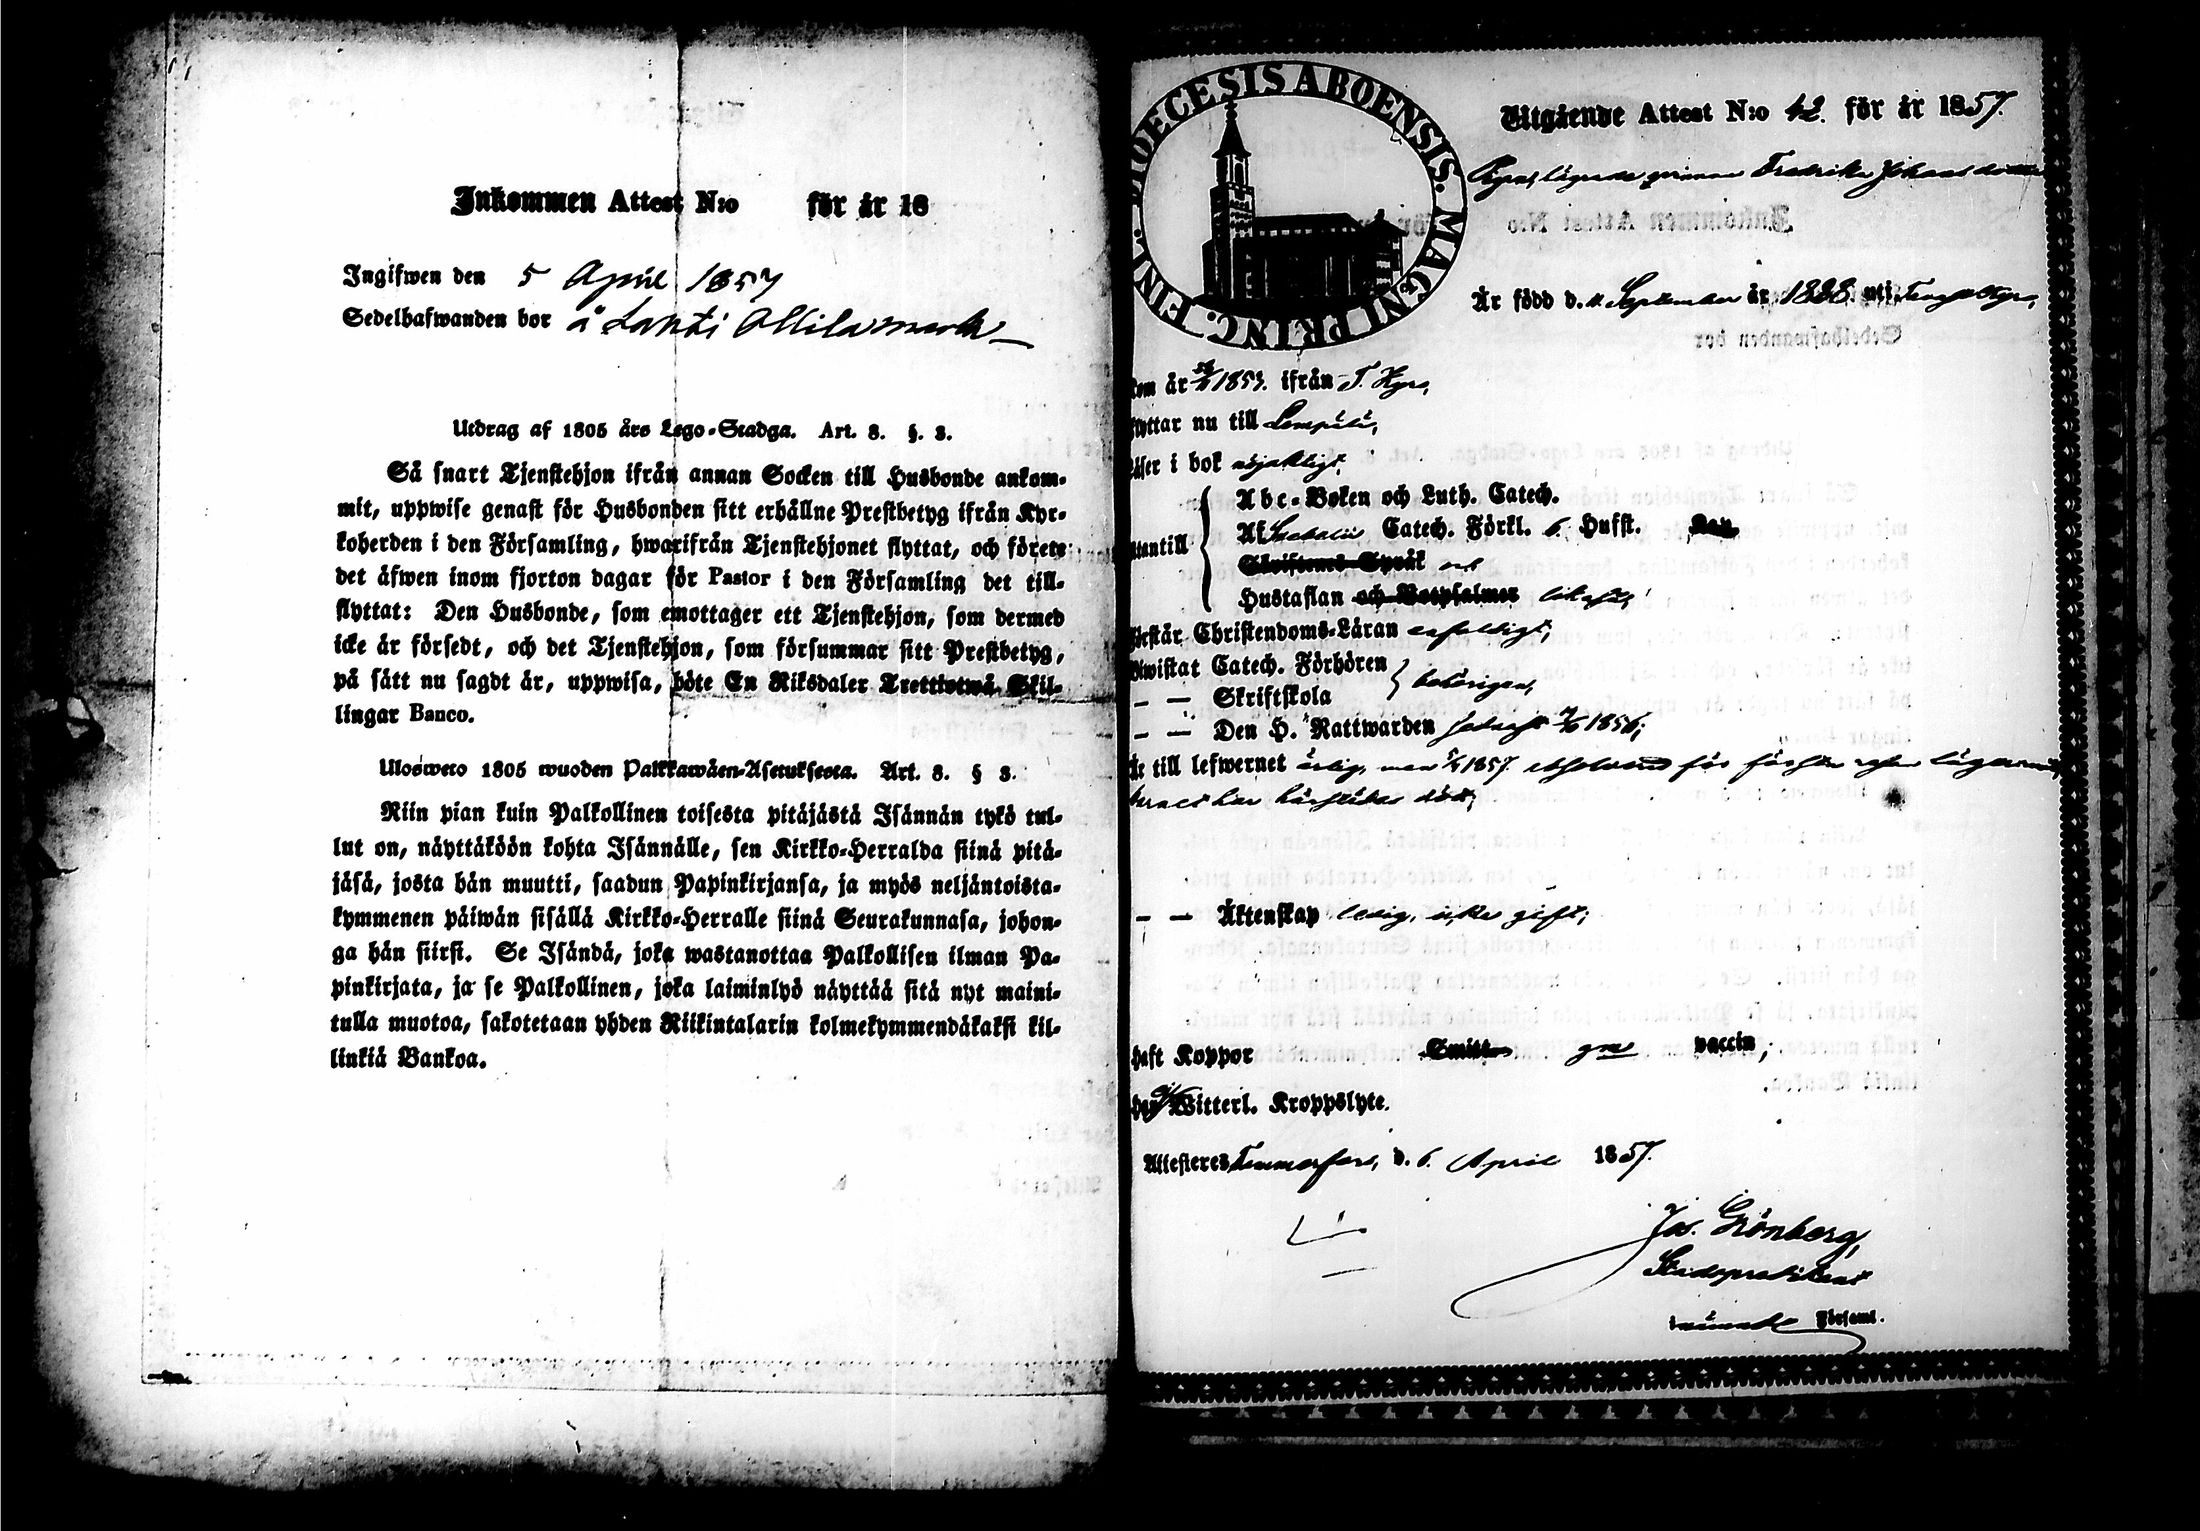 Inkommen Attest N:o för år 18
Ingifwen den 5 April 1857
Sedelhafwanden bor å Lahti Ollila mark
Utdrag af 1805 års Lego-Stadga. Art. 8. §. 3.
Så snart Tjenstehjon ifrån annan Socken till Husbonde ankom-
mit, uppwise genast för Husbonden sitt erhållne Prestbetyg ifrån Kyr-
koherden i den Församling, hwarifrån Tjenstehjonet flyttat, och förete
det äfwen inom fjorton dagar för Pastor i den Församling det till-
flyttat: Den Husbonde, som emottager ett Tjenstehjon, som dermed
icke är försedt, och det Tjenstehjon, som försummar sitt Prestbetyg,
på sätt nu sagdt är, uppwisa, böte En Riksdaler Trettiotwå Skil-
lingar Banco.
Ulosweto 1805 wuoden Palkkawäen-Asetuksesta. Art. 8. § 3.
Niin pian kuin Palkollinen toisesta pitäjästä Isännän tykö tul-
lut on, näyttäköön kohta Isännälle, sen Kirkko-Herralda siinä pitä-
jäsä, josta hän muutti, saadun Papinkirjansa, ja myös neljäntoista-
kymmenen päiwän sisällä Kirkko-Herralle siinä Seurakunnasa, johon-
ga hän siirsi. Se Isändä, joka wastanottaa Palkollisen ilman Pa-
pinkirjata, ja se Palkollinen, joka laiminlyö näyttää sitä nyt maini-
tulla muotoa, sakotetaan yhden Riikintalarin kolmekymmendäkaksi kil-
linkiä Bankoa.
DIOECESIS ABOENSIS. MAGNI PRINC. FINL.
Utgående Attest N:o 42. för år 1857.
Fredrika Johansdotter
Är född d. 11 September år 1828. uti
kom år 1853. ifrån T. Kyro,
flyttar nu till Lempälä,
Läser i bok nöjaktigt,
Abc-Boken och Luth. Catech.
Utantill Af Svebelii Catech. Förkl. 6. Hufst. Kap.
Skriftenes Språk
Hustaflan och Botpsalmer likaså,
Förstår Christendoms-Läran enfaldigt,
Biwistat Catech. Förhören
— — Skriftskola behörigen,
— — Den H. Nattwarden 1856;
Är till lefwernet ärlig, men 1857. för
barnet har död;
— — Äktenskap ledig, icke gift;
Haft Koppor Smitto vaccin,
Har Witterl. Kroppslyte.
Attesteres Tammerfors, d. 6. April 1857.
Jos. Grönberg,
Stadspredikant
Församl.